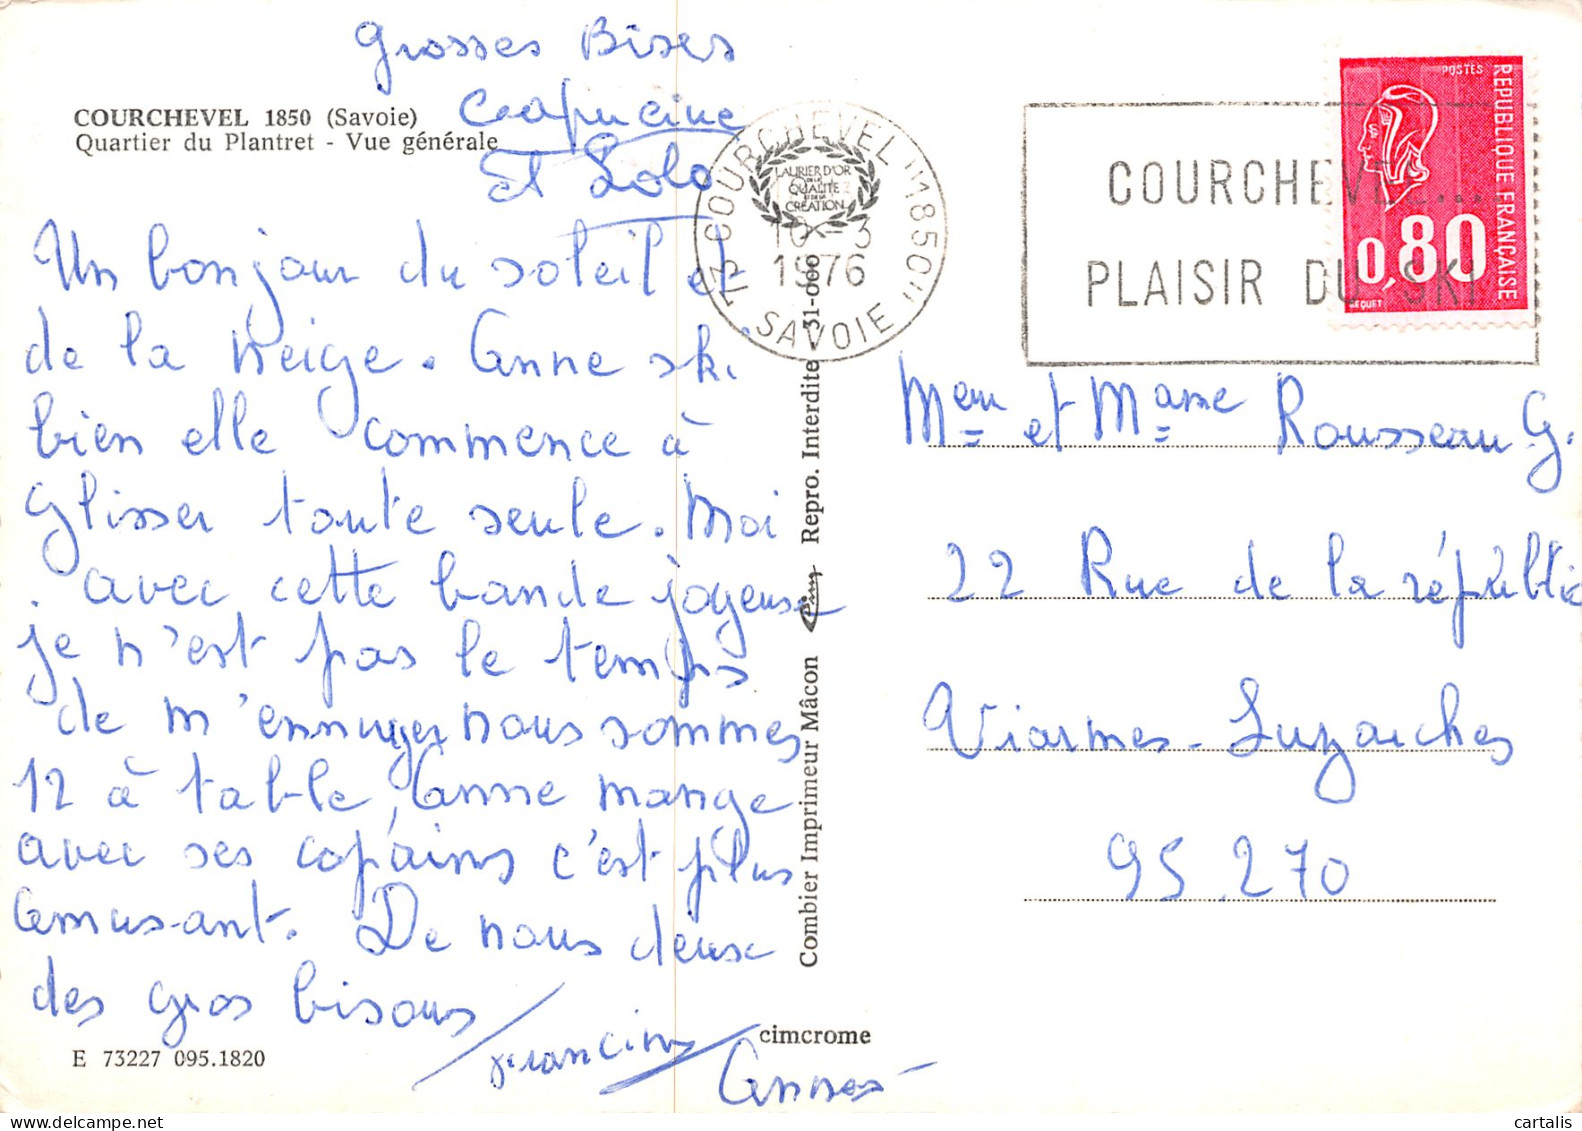 Grosses Bises
Capucine
et Lolo
COURCHEVEL 1850 (Savoie)
Quartier du Plantret - Vue générale
Un bonjour du soleil et
de la neige. Anne ski
bien elle commence à
glisser toute seule. Moi
avec cette bande joyeuse
je n'est pas le temps
de m'ennuyer nous sommes
12 à table, Anne mange
avec ses copains c'est plus
amusant. De nous deux
des gros bisous
Francine
Annes
E 73227 095.1820
cimcrome
Combier Imprimeur Mâcon Cim Repro. Interdite 31-000
73 COURCHEVEL "1850"
LAURIER D'OR
DE LA
QUALITÉ
ET DE LA
CRÉATION
10 - 3
1976
SAVOIE
COURCHEVEL...
PLAISIR DU SKI
POSTES
RÉPUBLIQUE FRANÇAISE
0,80
BEQUET
Meur et Mame Rousseau G.
22 Rue de la république
Viarmes - Luzarches
95.270
cartalis.com